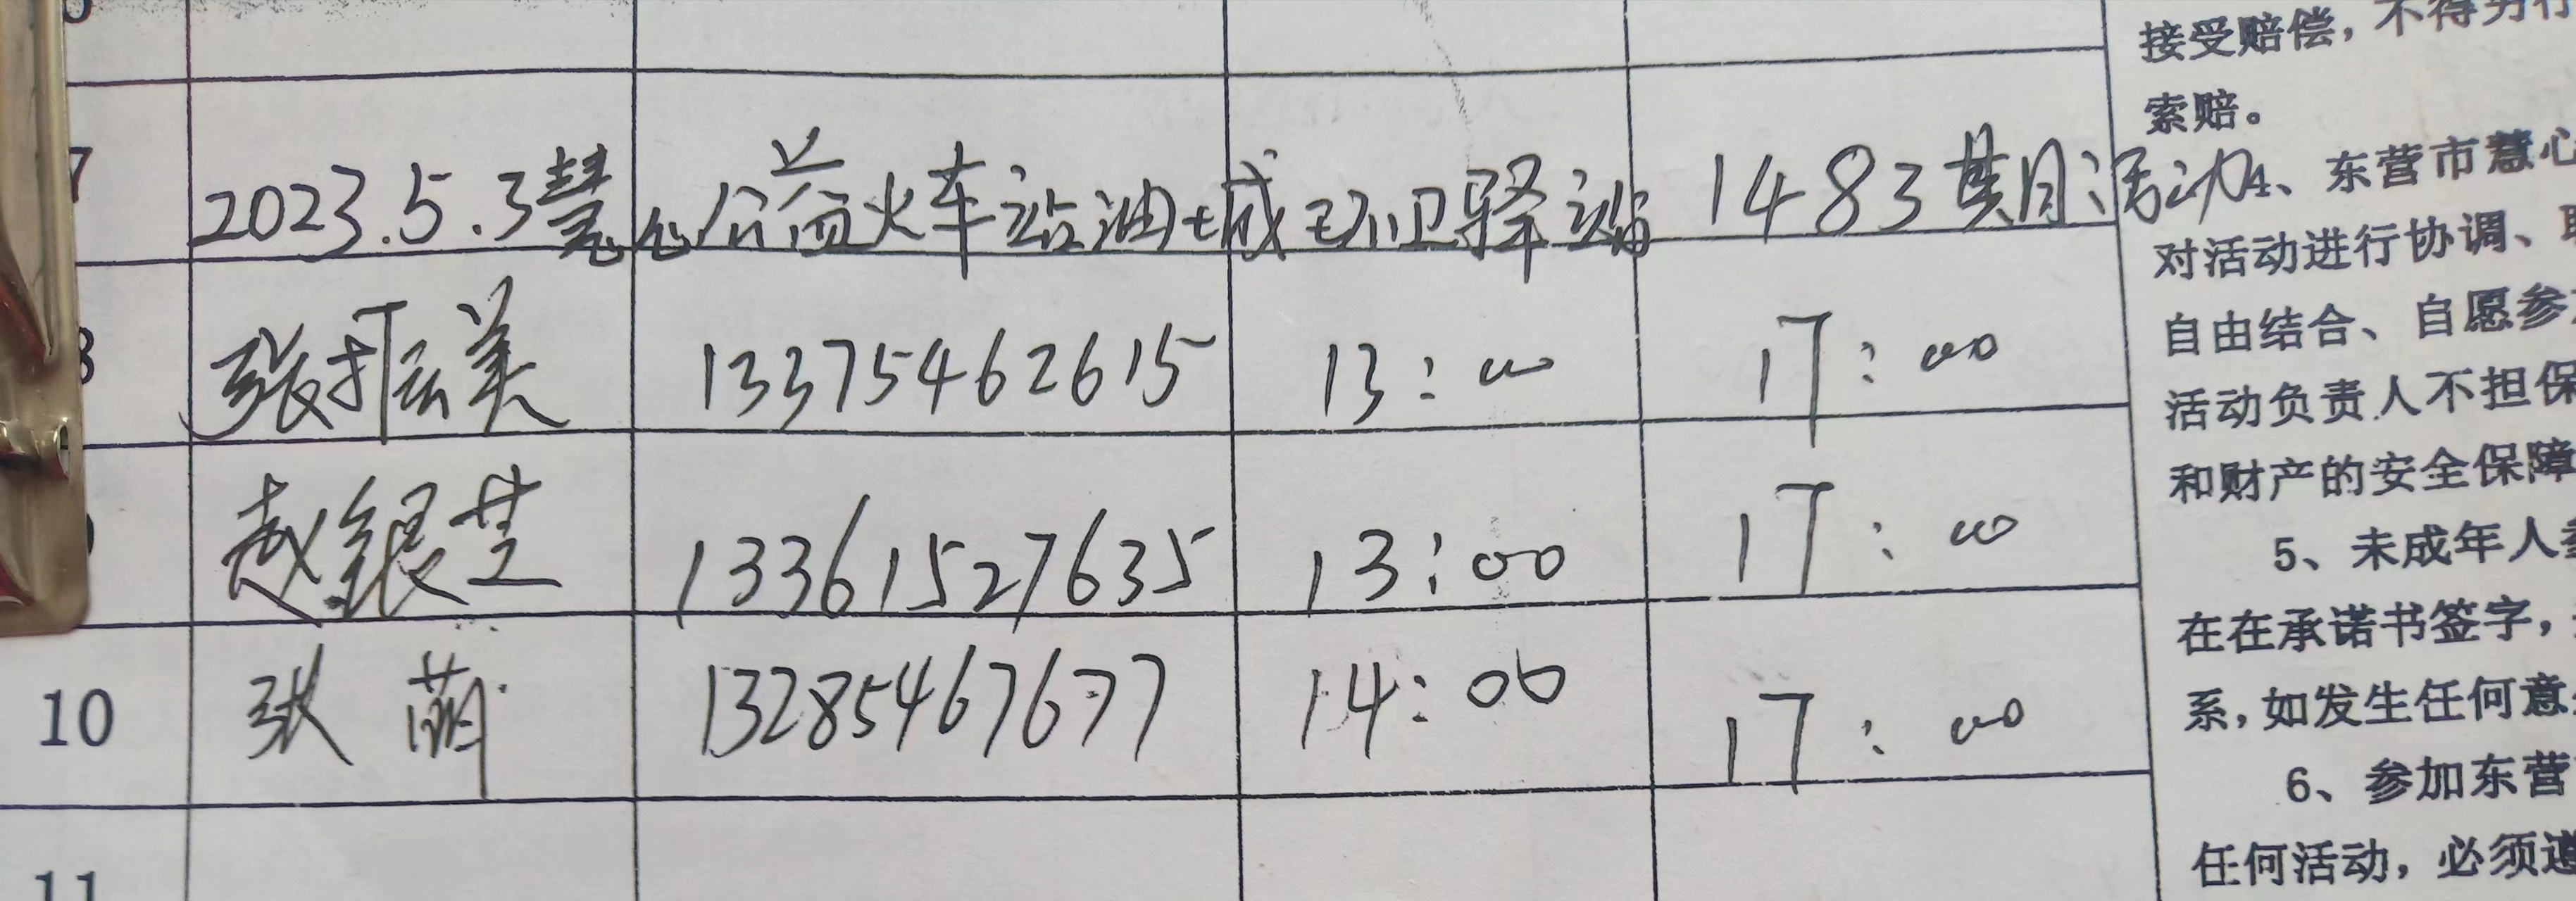 接受赔偿，不得另行
索赔。
7 2023.5.3慧心公益火车站油城环卫驿站1483期活动
4、东营市慧心
对活动进行协调、
8 张振美 13375462615 13:00 17:00
自由结合、自愿参
活动负责人不担保
9 赵银芝 13361527635 13:00 17:00
和财产的安全保障
5、未成年人
在在承诺书签字，
10 张萌 13285467677 14:00 17:00
系，如发生任何意
6、参加东营
11
任何活动，必须遵